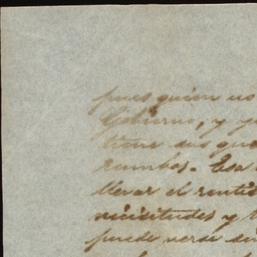 pues quien no
Gobierno, y
tiene sus que
rumbos. Esa
llevar el sentid
vicisitudes y
puede verse sin